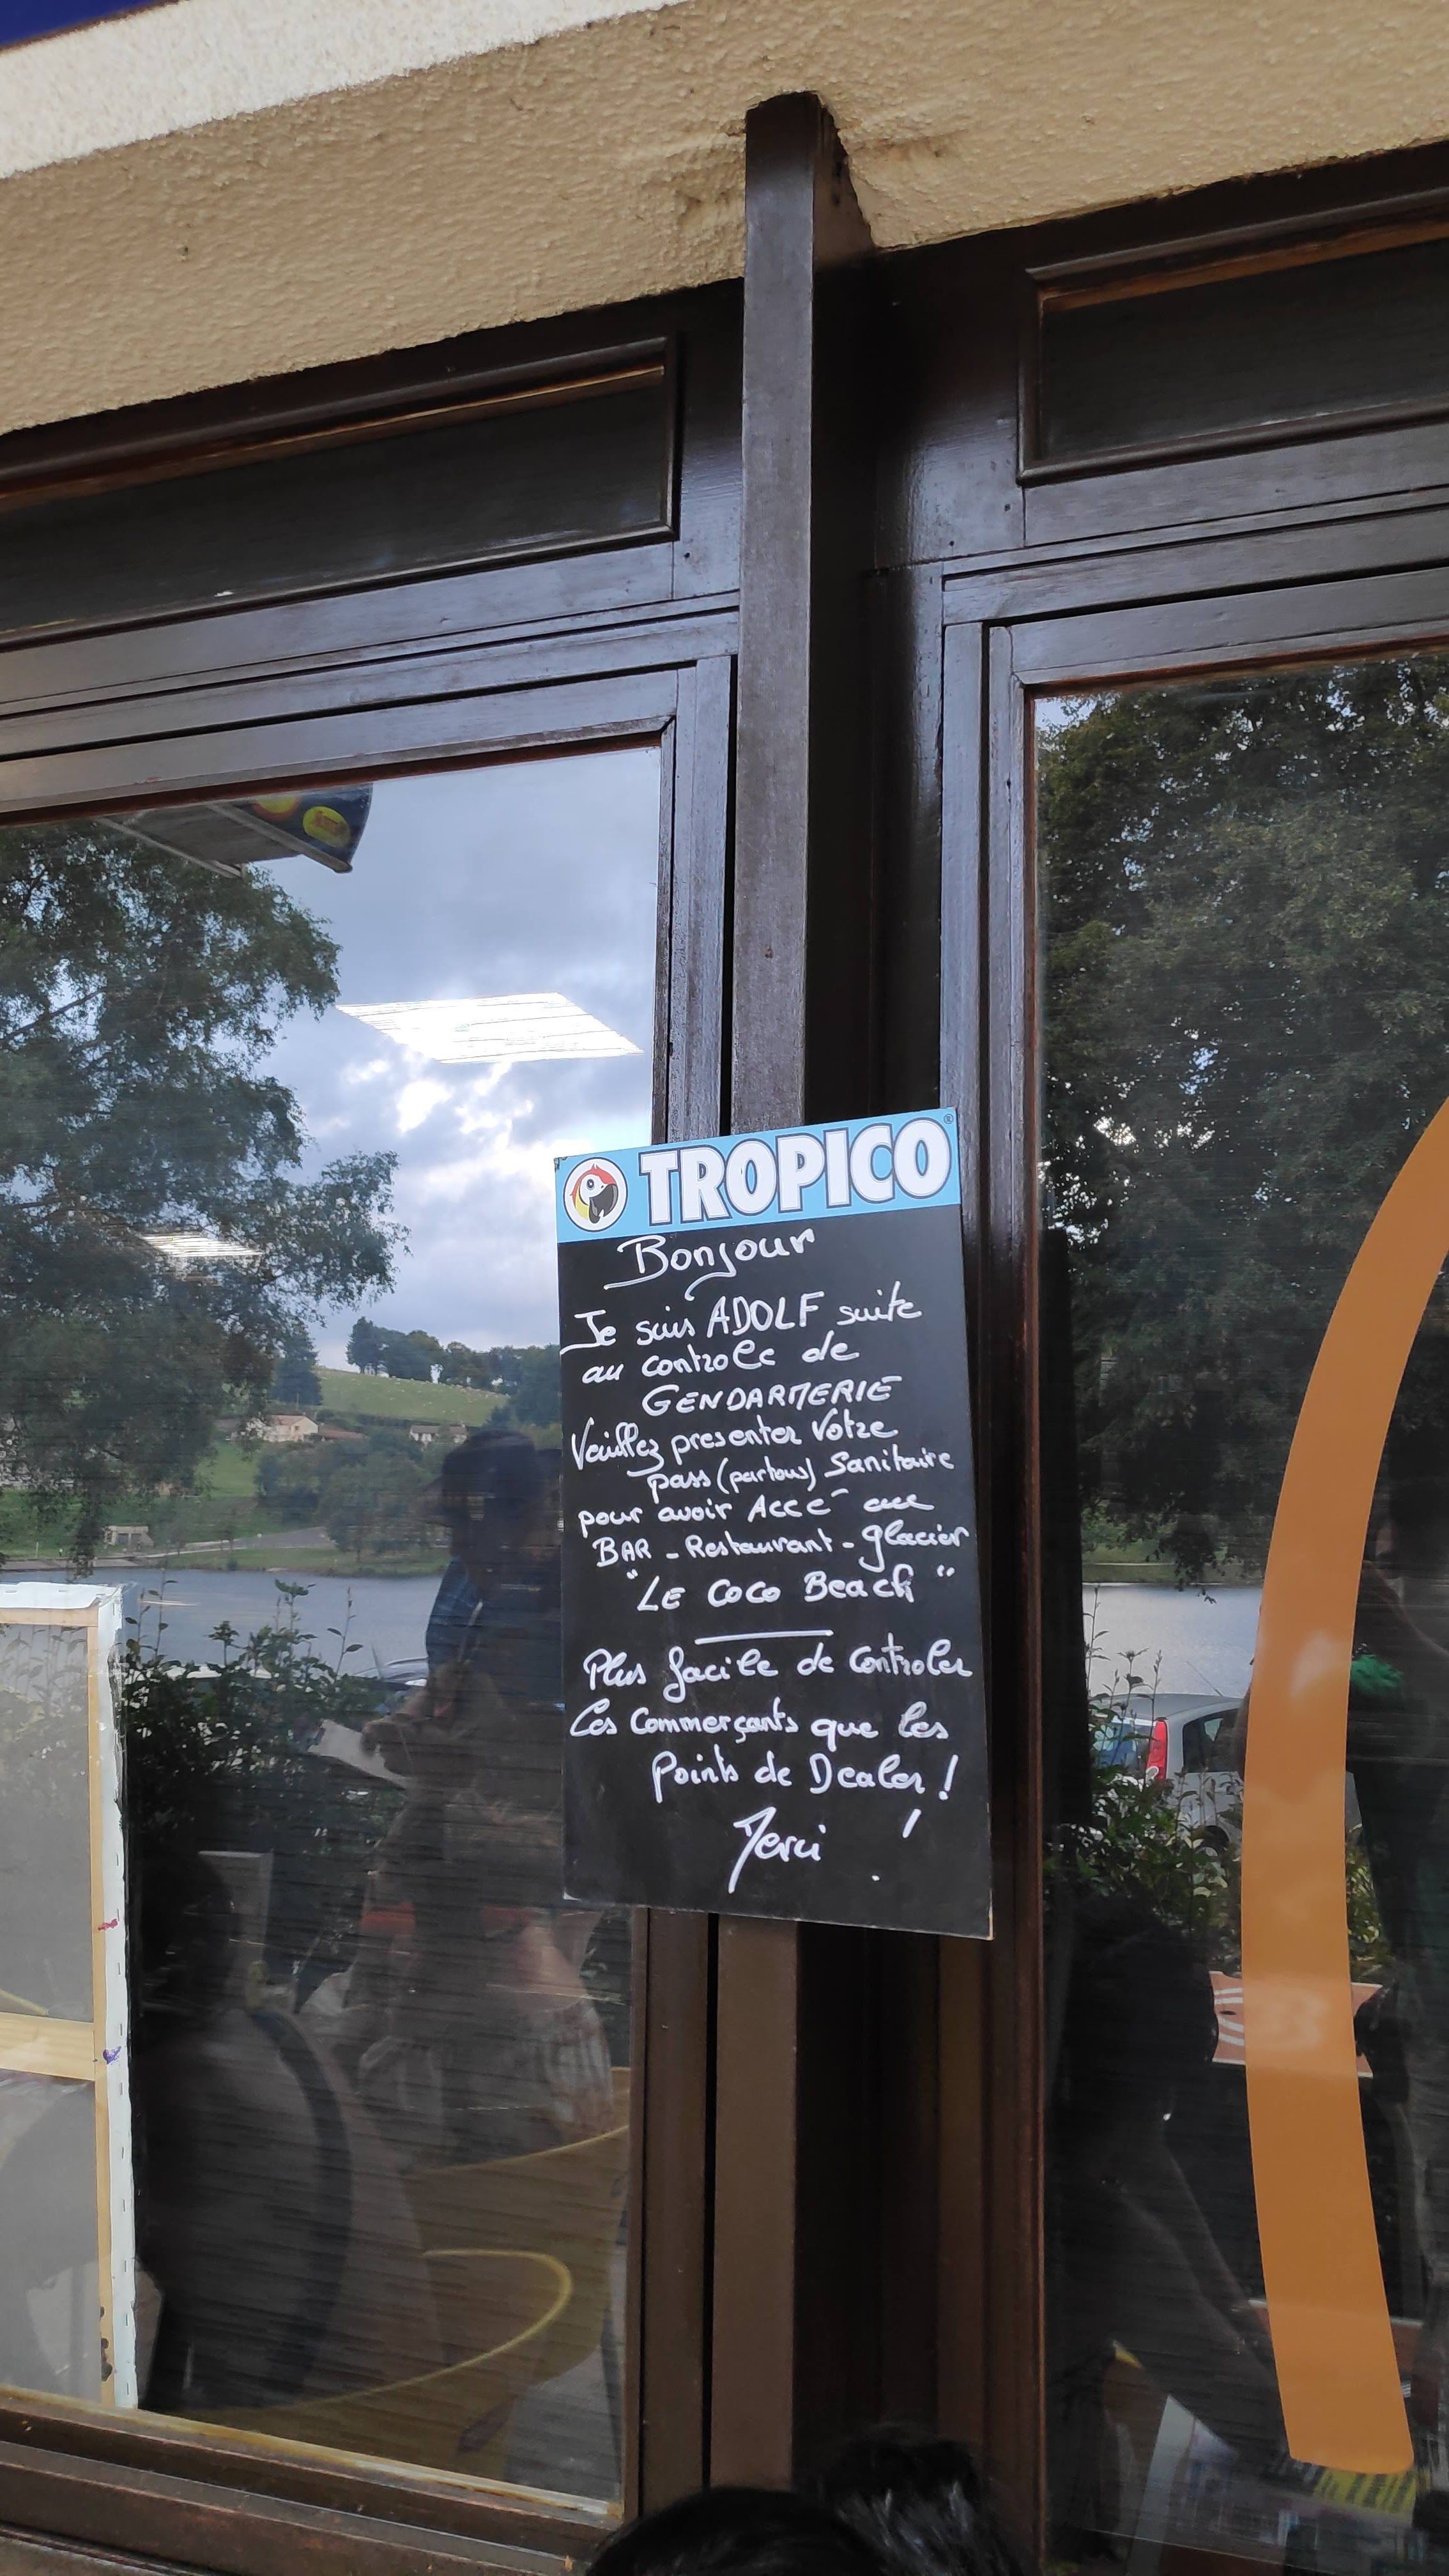 TROPICO®
Bonjour
Je suis ADOLF suite
au controle de
GENDARMERIE
Veuillez presenter Votre
pass (partous) Sanitaire
pour avoir Accé au
BAR - Restaurant - glacier
"LE COCO Beach"
Plus facile de Controler
Les Commerçants que les
Points de Dealer !
Merci !